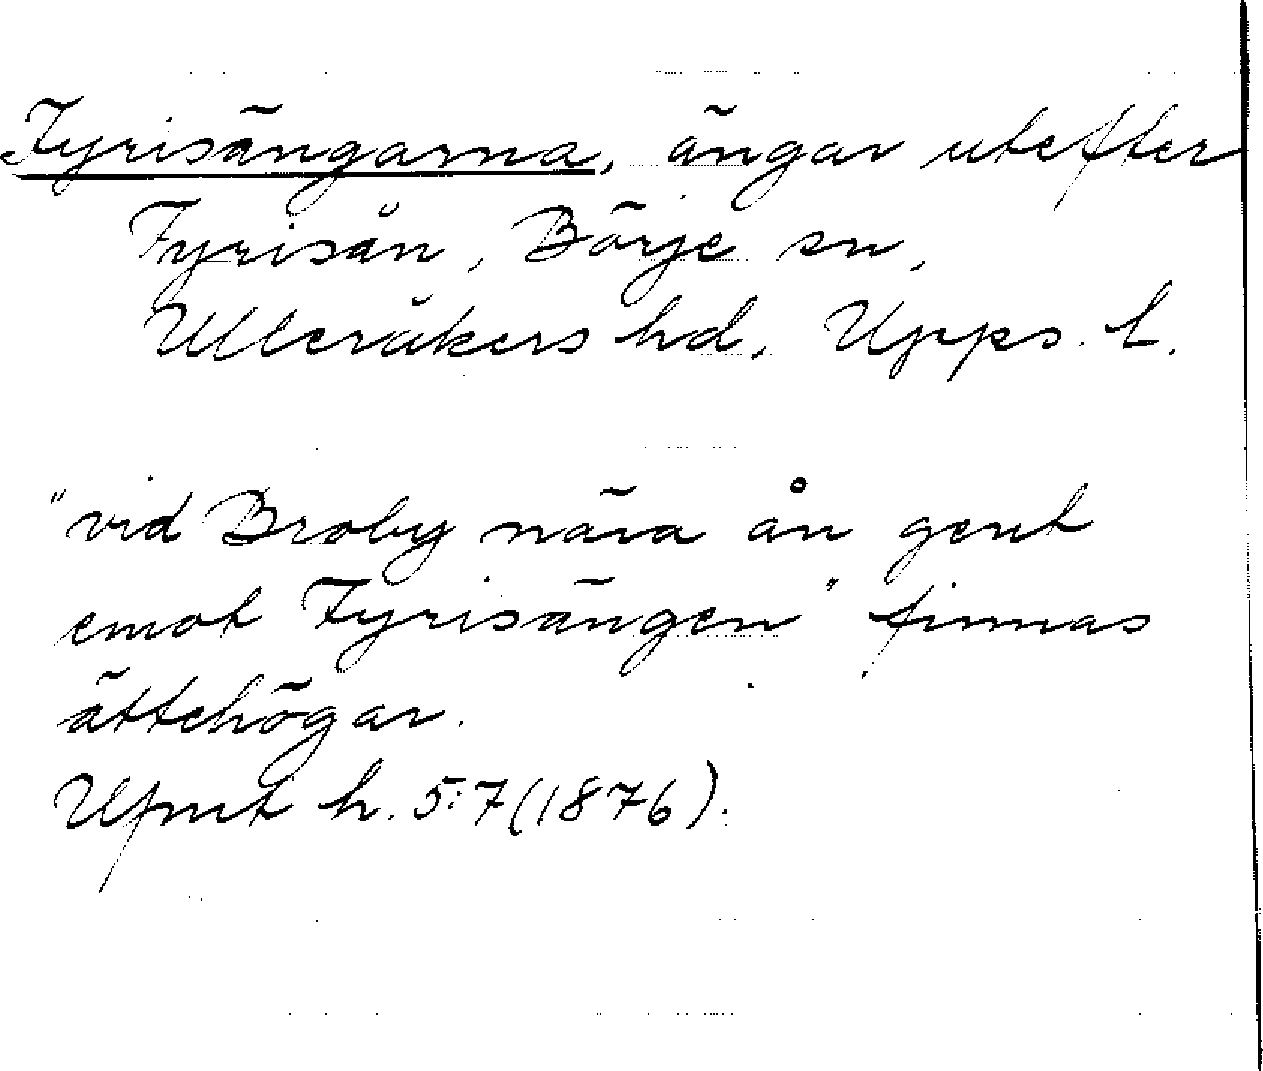 Fyrisängarna, ängar utefter
Fyrisån, Börje sn,
Ulleråkers hd, Upps. l.
"vid Broby nära ån gent
emot Fyrisängen" finnas
ättehögar.
Ufmt h. 5:7 (1876).